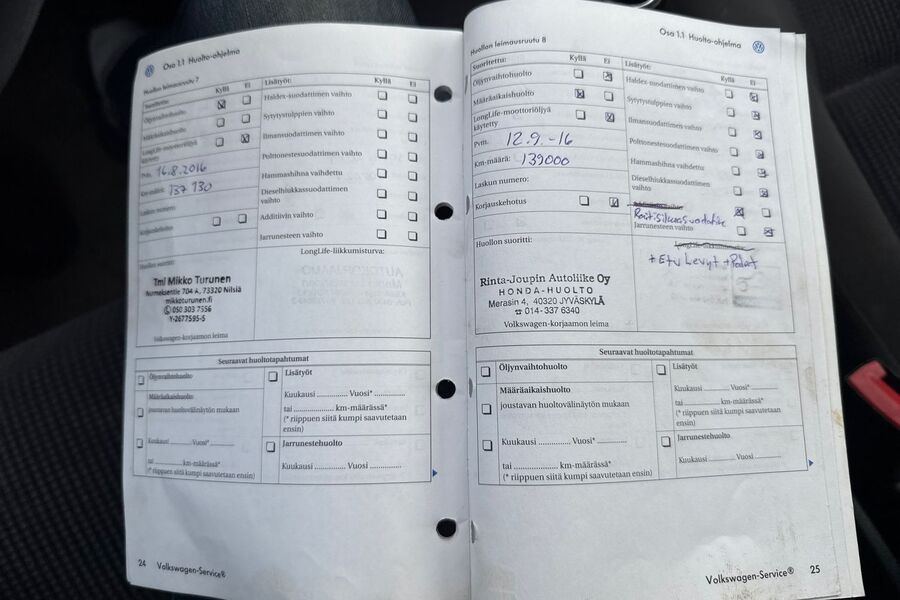 Osa 1.1 Huolto-ohjelma
Huollon leimausruutu 7
Suoritettu:
Kyllä Ei
Öljynvaihtohuolto
Määräaikaishuolto
LongLife-moottoriöljyä
käytetty
Pvm. 16.8.2016
Km-määrä: 137 130
Laskun numero:
Korjauskehotus
Lisätyöt:
Kyllä Ei
Haldex-suodattimen vaihto
Sytytystulppien vaihto
Ilmansuodattimen vaihto
Polttonestesuodattimen vaihto
Hammashihna vaihdettu
Dieselhiukkassuodattimen
vaihto
Additiivin vaihto
Jarrunesteen vaihto
Huollon suoritti:
Tmi Mikko Turunen
Nurmeksentie 704 A, 73320 Nilsiä
mikkoturunen.fi
050 303 7556
Y-2677595-5
Volkswagen-korjaamon leima
LongLife-liikkumisturva:
Seuraavat huoltotapahtumat
Öljynvaihtohuolto
Määräaikaishuolto
joustavan huoltovälinäytön mukaan
Kuukausi .............. Vuosi* ..............
tai .................... km-määrässä*
(* riippuen siitä kumpi saavutetaan ensin)
Lisätyöt
Kuukausi .............. Vuosi* ..............
tai .................... km-määrässä*
(* riippuen siitä kumpi saavutetaan
ensin)
Jarrunestehuolto
Kuukausi .............. Vuosi ..............
24 Volkswagen-Service®
Osa 1.1 Huolto-ohjelma
Huollon leimausruutu 8
Suoritettu:
Kyllä Ei
Öljynvaihtohuolto
Määräaikaishuolto
LongLife-moottoriöljyä
käytetty
Pvm. 12.9.-16
Km-määrä: 139000
Laskun numero:
Korjauskehotus
Lisätyöt:
Kyllä Ei
Haldex-suodattimen vaihto
Sytytystulppien vaihto
Ilmansuodattimen vaihto
Polttonestesuodattimen vaihto
Hammashihna vaihdettu
Dieselhiukkassuodattimen
vaihto
Additiivin vaihto
Raitisilmasuodatin
Jarrunesteen vaihto
+ Etu Levyt + Palat
Huollon suoritti:
Rinta-Joupin Autoliike Oy
HONDA-HUOLTO
Merasin 4, 40320 JYVÄSKYLÄ
☎ 014-337 6340
Volkswagen-korjaamon leima
Seuraavat huoltotapahtumat
Öljynvaihtohuolto
Määräaikaishuolto
joustavan huoltovälinäytön mukaan
Kuukausi .............. Vuosi* ..............
tai .................... km-määrässä*
(* riippuen siitä kumpi saavutetaan ensin)
Lisätyöt
Kuukausi .............. Vuosi* ..............
tai .................... km-määrässä*
(* riippuen siitä kumpi saavutetaan
ensin)
Jarrunestehuolto
Kuukausi .............. Vuosi ..............
Volkswagen-Service® 25